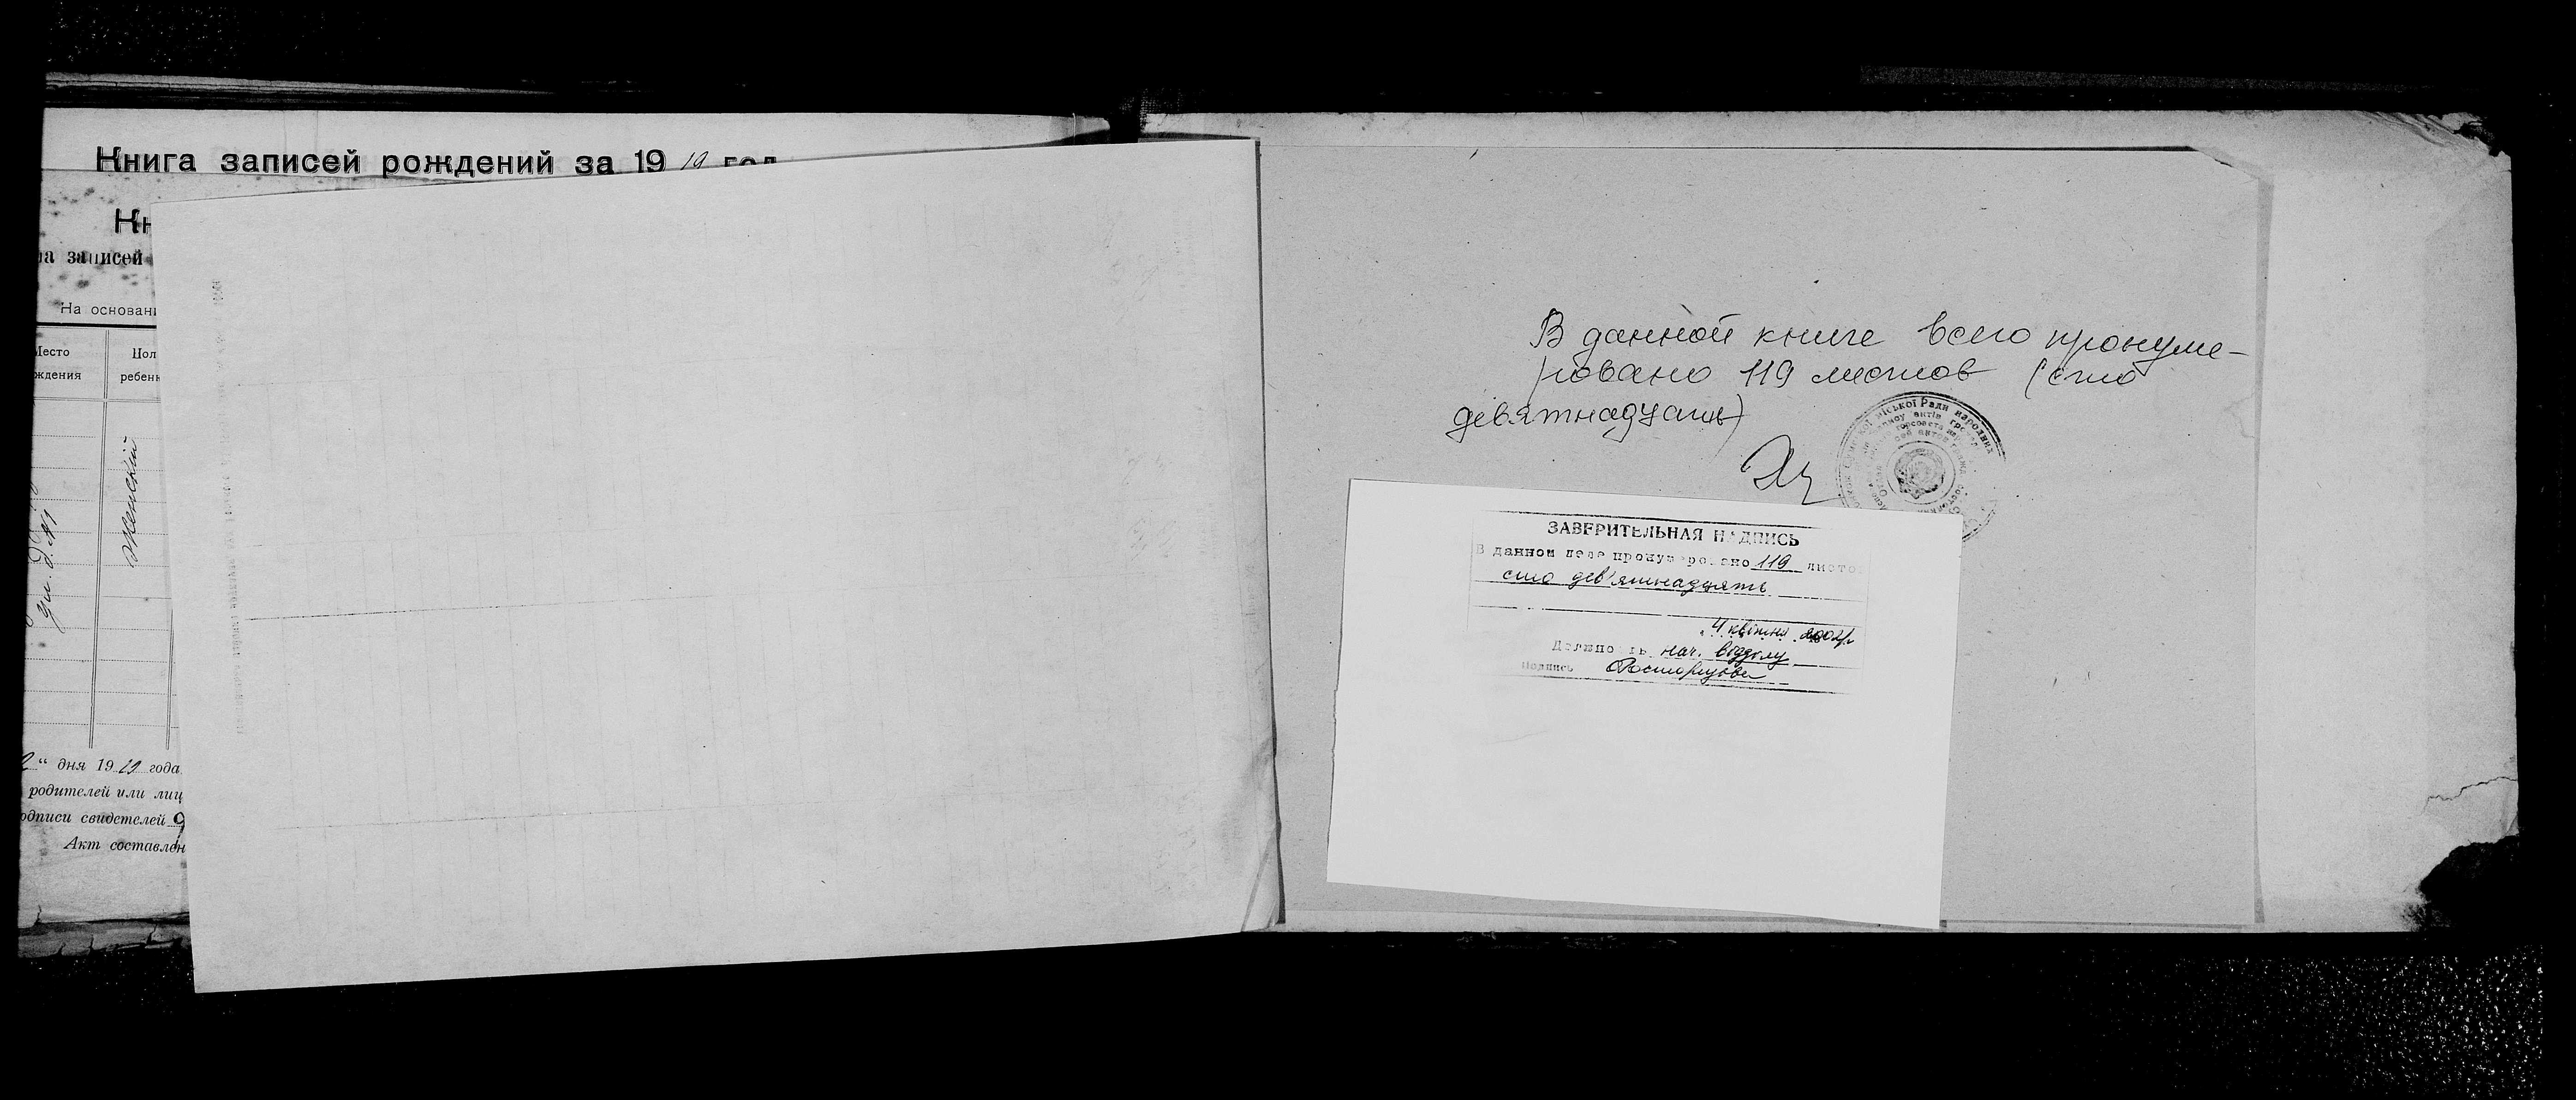 Книга записей рождений за 1919 год
Кн
на записей
На основани
Место
ждения
Пол
ребенк
Женский
" дня 1919 года
родителей или лиц
одписи свидетелей
Акт составлен
В данной книге всего пронуме-
ровано 119 листов (сто
девятнадцать)
міської Ради народних
ЗАВЕРИТЕЛЬНАЯ НАДПИСЬ
В данном деле пронумеровано 119 листов
сто дев'ятнадцять
"4 квітня 2002р
Должность нач. відділу
Подпись